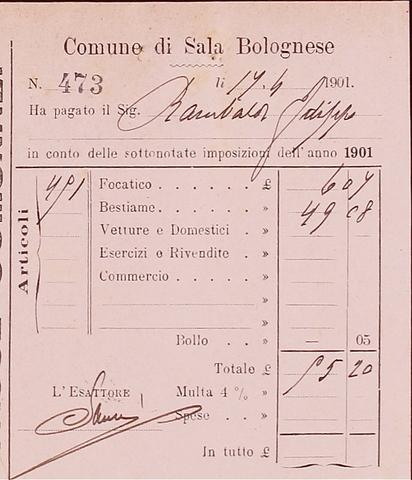 Comune di Sala Bolognese
N. 473 li 17.4 1901.
Ha pagato il Sig. Rambaldi Filippo
in conto delle sottonotate imposizioni dell'anno 1901
Articoli
451 Focatico . . . . . . £ 6 07
Bestiame. . . . . . » 49 08
Vetture e Domestici . »
Esercizi e Rivendite . »
Commercio . . . . . »
»
»
Bollo . . » — 05
Totale £ 55 20
L'ESATTORE Multa 4 % . »
Spese . . »
In tutto £